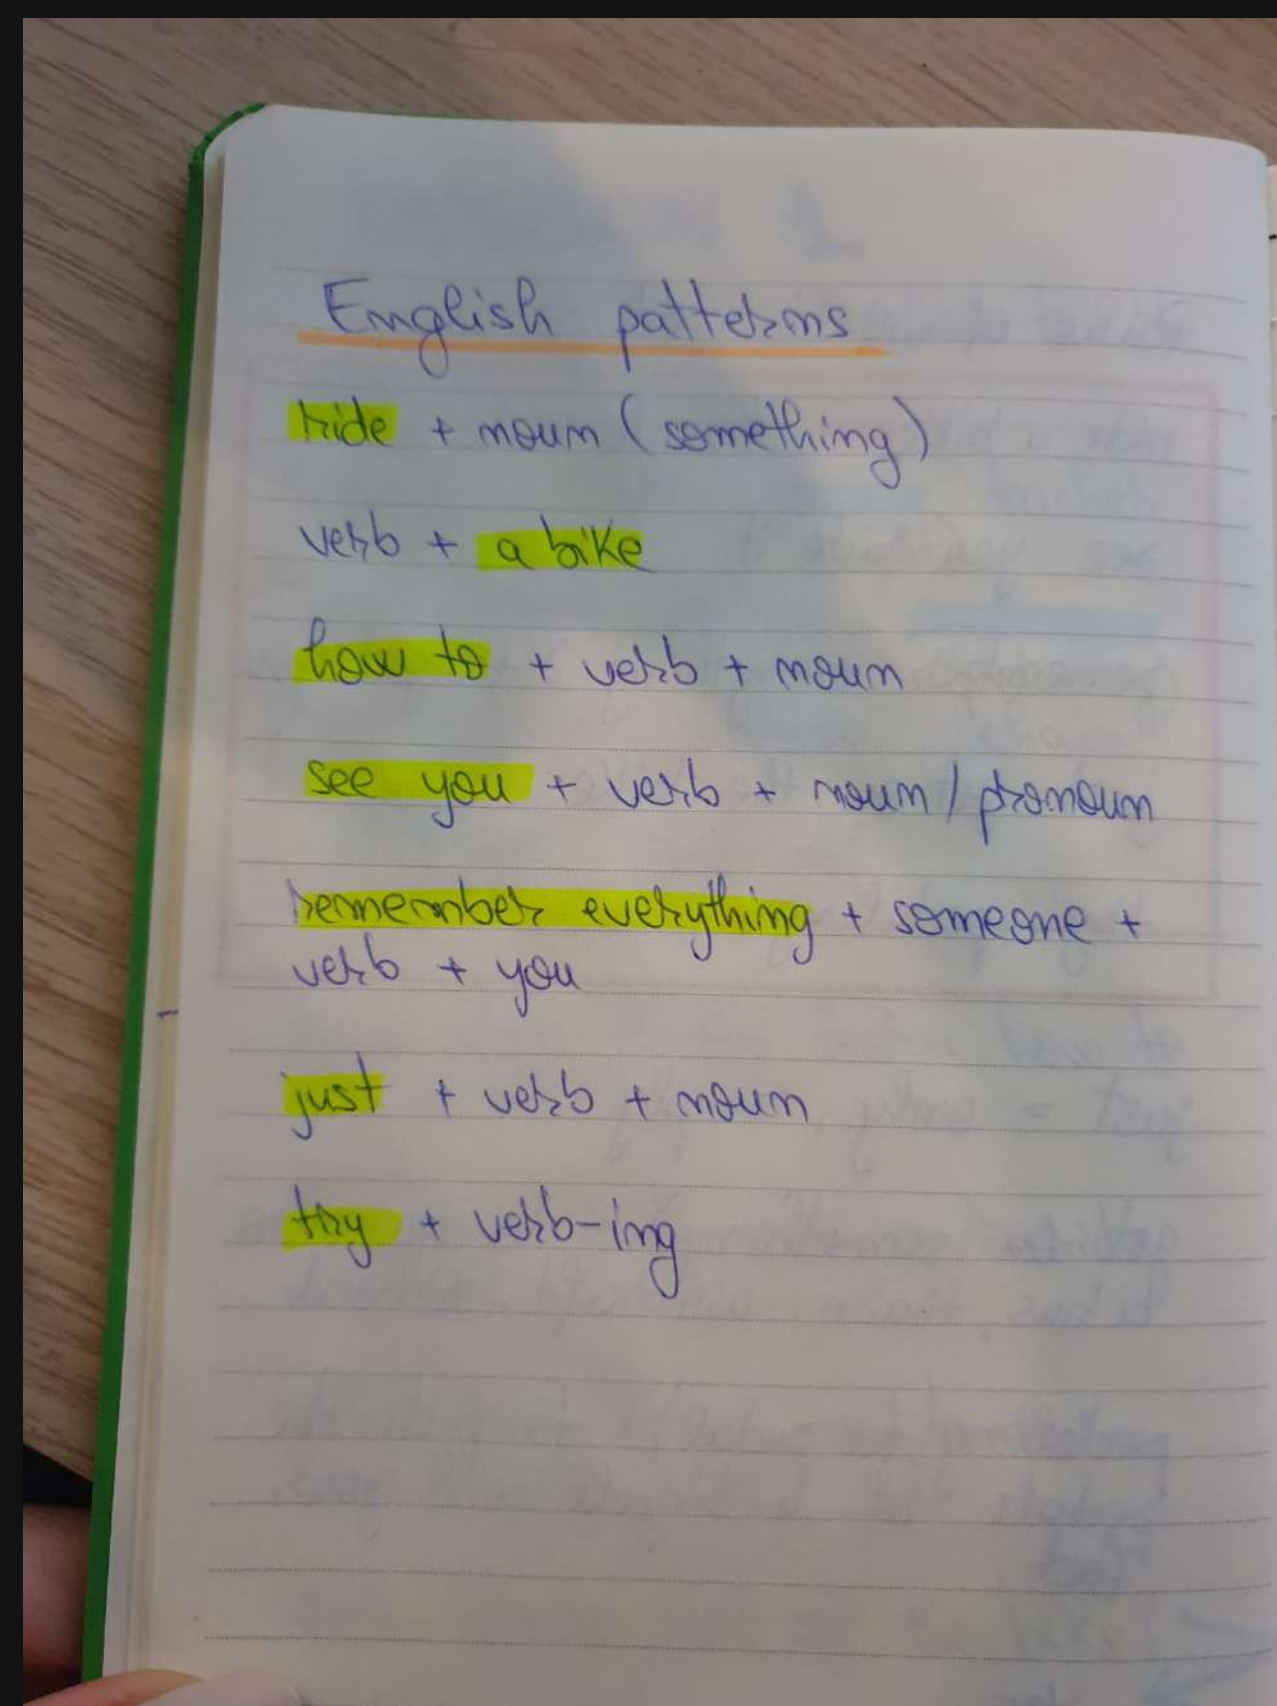 English patterns
ride + noun (something)
verb + a bike
how to + verb + noun
see you + verb + noun / pronoun
remember everything + someone +
verb + you
just + verb + noun
try + verb-ing